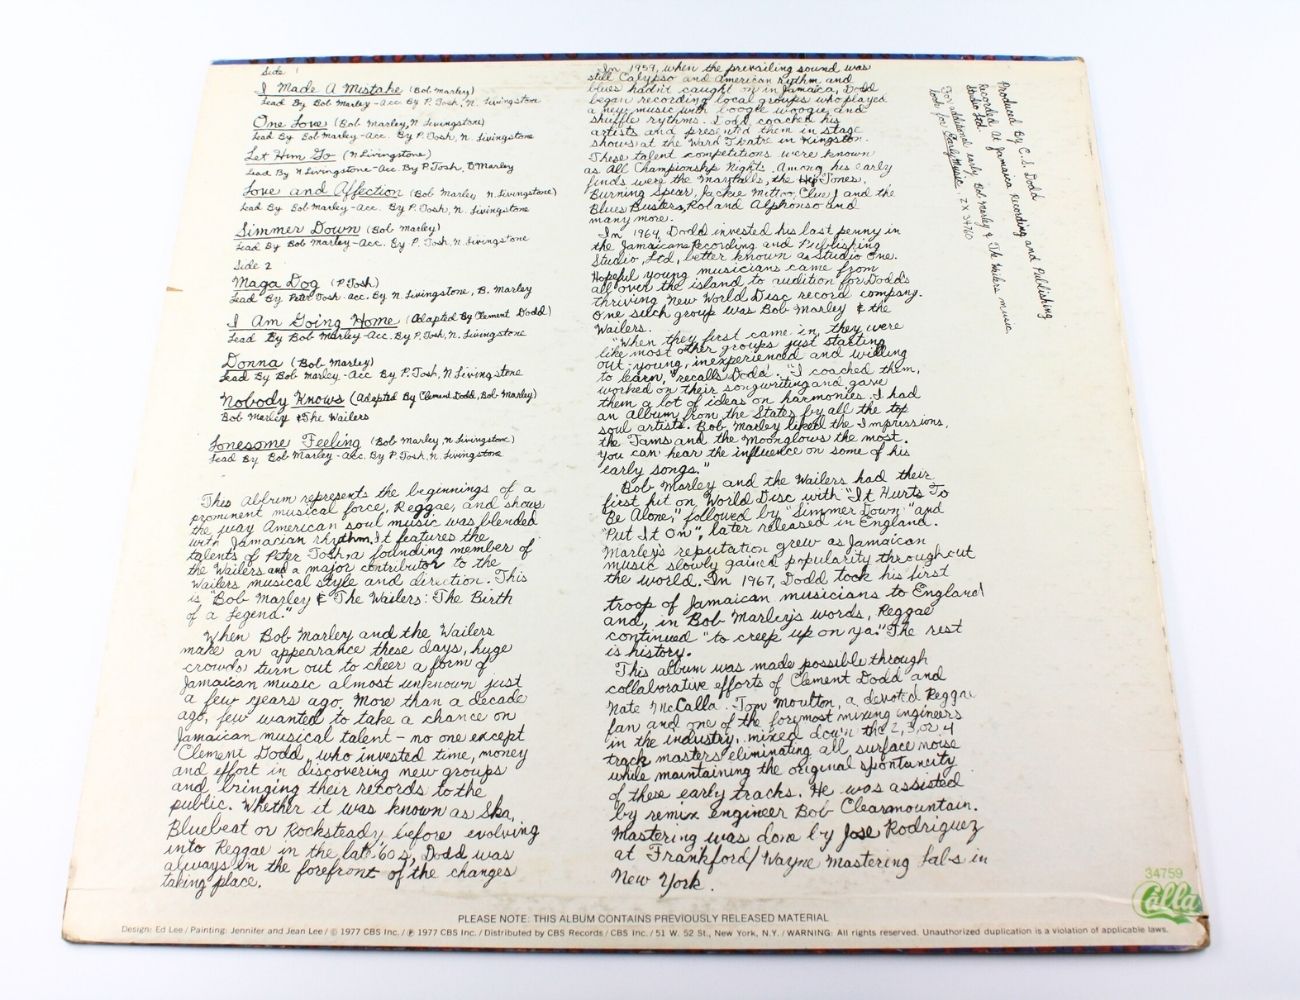 Side 1
I Made A Mistake (Bob Marley)
Lead By Bob Marley-Acc. By P. Tosh, N. Livingstone
One Love (Bob Marley, N Livingstone)
Lead By Bob Marley-Acc. By P. Tosh, N. Livingstone
Let Him Go (N Livingstone)
Lead. By N. Livingstone-Acc. By P. Tosh, B Marley
Love and Affection (Bob Marley, N. Livingstone)
Lead By Bob Marley-Acc. By P. Tosh, N. Livingstone
Simmer Down (Bob Marley)
Lead By Bob Marley-Acc. By P. Tosh, N. Livingstone
Side 2
Maga Dog (P. Tosh)
Lead By Peter Tosh-acc. By N. Livingstone, B. Marley
I Am Going Home (Adapted By Clement Dodd)
Lead By Bob Marley-Acc. By P. Tosh, N. Livingstone
Donna (Bob Marley)
Lead By Bob Marley-Acc By P. Tosh, N Livingstone
Nobody Knows (Adapted By Clement Dodd, Bob Marley)
Bob Marley & The Wailers
Lonesome Feeling (Bob Marley, N Livingstone)
Lead By Bob Marley-Acc. By P. Tosh, N. Livingstone
This album represents the beginnings of a
prominent musical force, Reggae, and shows
the way American soul music was blended
with Jamacian rhythm. It features the
talents of Peter Tosh, a founding member of
the Wailers and a major contributor to the
Wailers musical style and direction. This
is "Bob Marley & The Wailers: The Birth
of a Legend."
When Bob Marley and the Wailers
make an appearance these days, huge
crowds turn out to cheer a form of
Jamaican music almost unknown just
a few years ago. More than a decade
ago, few wanted to take a chance on
Jamaican musical talent - no one except
Clement Dodd, who invested time, money
and effort in discovering new groups
and bringing their records to the
public. Whether it was known as Ska,
Bluebeat or Rocksteady, before evolving
into Reggae in the late '60s, Dodd was
always in the forefront of the changes
taking place.
In 1959, when the prevailing sound was
still Calypso and American rythm and
blues hadn't caught on in Jamaica, Dodd
began recording local groups who played
a new music with boogie woogie and
shuffle rythms. Dodd coached his
artists and presented them in stage
shows at the Ward Theatre in Kingston.
These talent competitions were known
as All Championship Nights. Among his early
finds were the Maythalls, the Jones,
Burning Spear, Jackie Mittoo, Clue J and the
Blues Busters, Roland Alphonso and
many more.
In 1964, Dodd invested his last penny in
the Jamaican Recording and Publishing
Studio, Ltd, better known as Studio One.
Hopeful young musicians came from
all over the island to audition for Dodd's
thriving New World Disc record company.
One such group was Bob Marley & the
Wailers.
"When they first came in, they were
like most other groups just starting
out-young, inexperienced and willing
to learn," recalls Dodd. "I coached them,
worked on their songwriting and gave
them a lot of ideas on harmonies. I had
an album from the States by all the top
soul artists. Bob Marley liked the Impressions,
the Tams and the Moonglows the most.
You can hear the influence on some of his
early songs."
Bob Marley and the Wailers had their
first hit on World Disc with "It Hurts To
Be Alone," followed by "Simmer Down" and
"Put It On", later released in England.
Marley's reputation grew as Jamaican
music slowly gained popularity throughout
the world. In 1967, Dodd took his first
troop of Jamaican musicians to England
and, in Bob Marley's words, Reggae
continued "to creep up on ya." The rest
is history.
This album was made possible through
collaborative efforts of Clement Dodd and
Nate McCalla. Tom Moulton, a devoted Reggae
fan and one of the foremost mixing engineers
in the industry, mixed down the 2, 3, or 4
track masters eliminating all surface noise
while maintaining the original spontaneity
of these early tracks. He was assisted
by remix engineer Bob Clearmountain.
Mastering was done by Jose Rodriguez
at Frankford/Wayne Mastering Labs in
New York.
Produced By C.S. Dodd
Recorded At Jamaica Recording and Publishing
Studio Ltd.
For additional early Bob Marley & The Wailers music
look for Early Music ZX 34760
34759
Calla
PLEASE NOTE: THIS ALBUM CONTAINS PREVIOUSLY RELEASED MATERIAL
Design: Ed Lee / Painting: Jennifer and Jean Lee / © 1977 CBS Inc. / ℗ 1977 CBS Inc. / Distributed by CBS Records / CBS Inc. / 51 W. 52 St., New York, N.Y. / WARNING: All rights reserved. Unauthorized duplication is a violation of applicable laws.